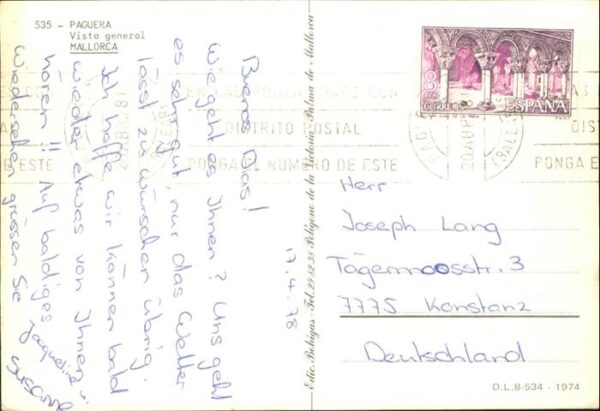 535 - PAGUERA
Vista general
MALLORCA
Buenos Dias!
Wie geht es Ihnen? Uns geht
es sehr gut, nur das Wetter
lässt zu wünschen übrig.
Ich hoffe wir können bald
wieder etwas von Ihnen
hören!! Auf baldiges
Wiedersehen grüssen Sie
Jaqueline u.
17.4.78
8
CORREOS
ESPAÑA
DISTRITO POSTAL
PONGA EL NUMERO DE ESTE
DIS
PONGA E
20 ABR
Herr
Joseph Lang
Tägermoosstr. 3
7775 Konstanz
Deutschland
D.L.B-534 - 1974